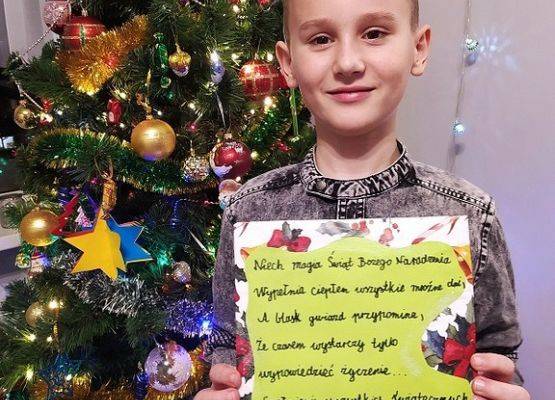 Niech magia Świąt Bożego Narodzenia
Wypełnia ciepłem wszystkie mroźne dni,
A blask gwiazd przypomina,
Że czasem wystarczy tylko
wypowiedzieć życzenie...
wszystkich Świątecznych